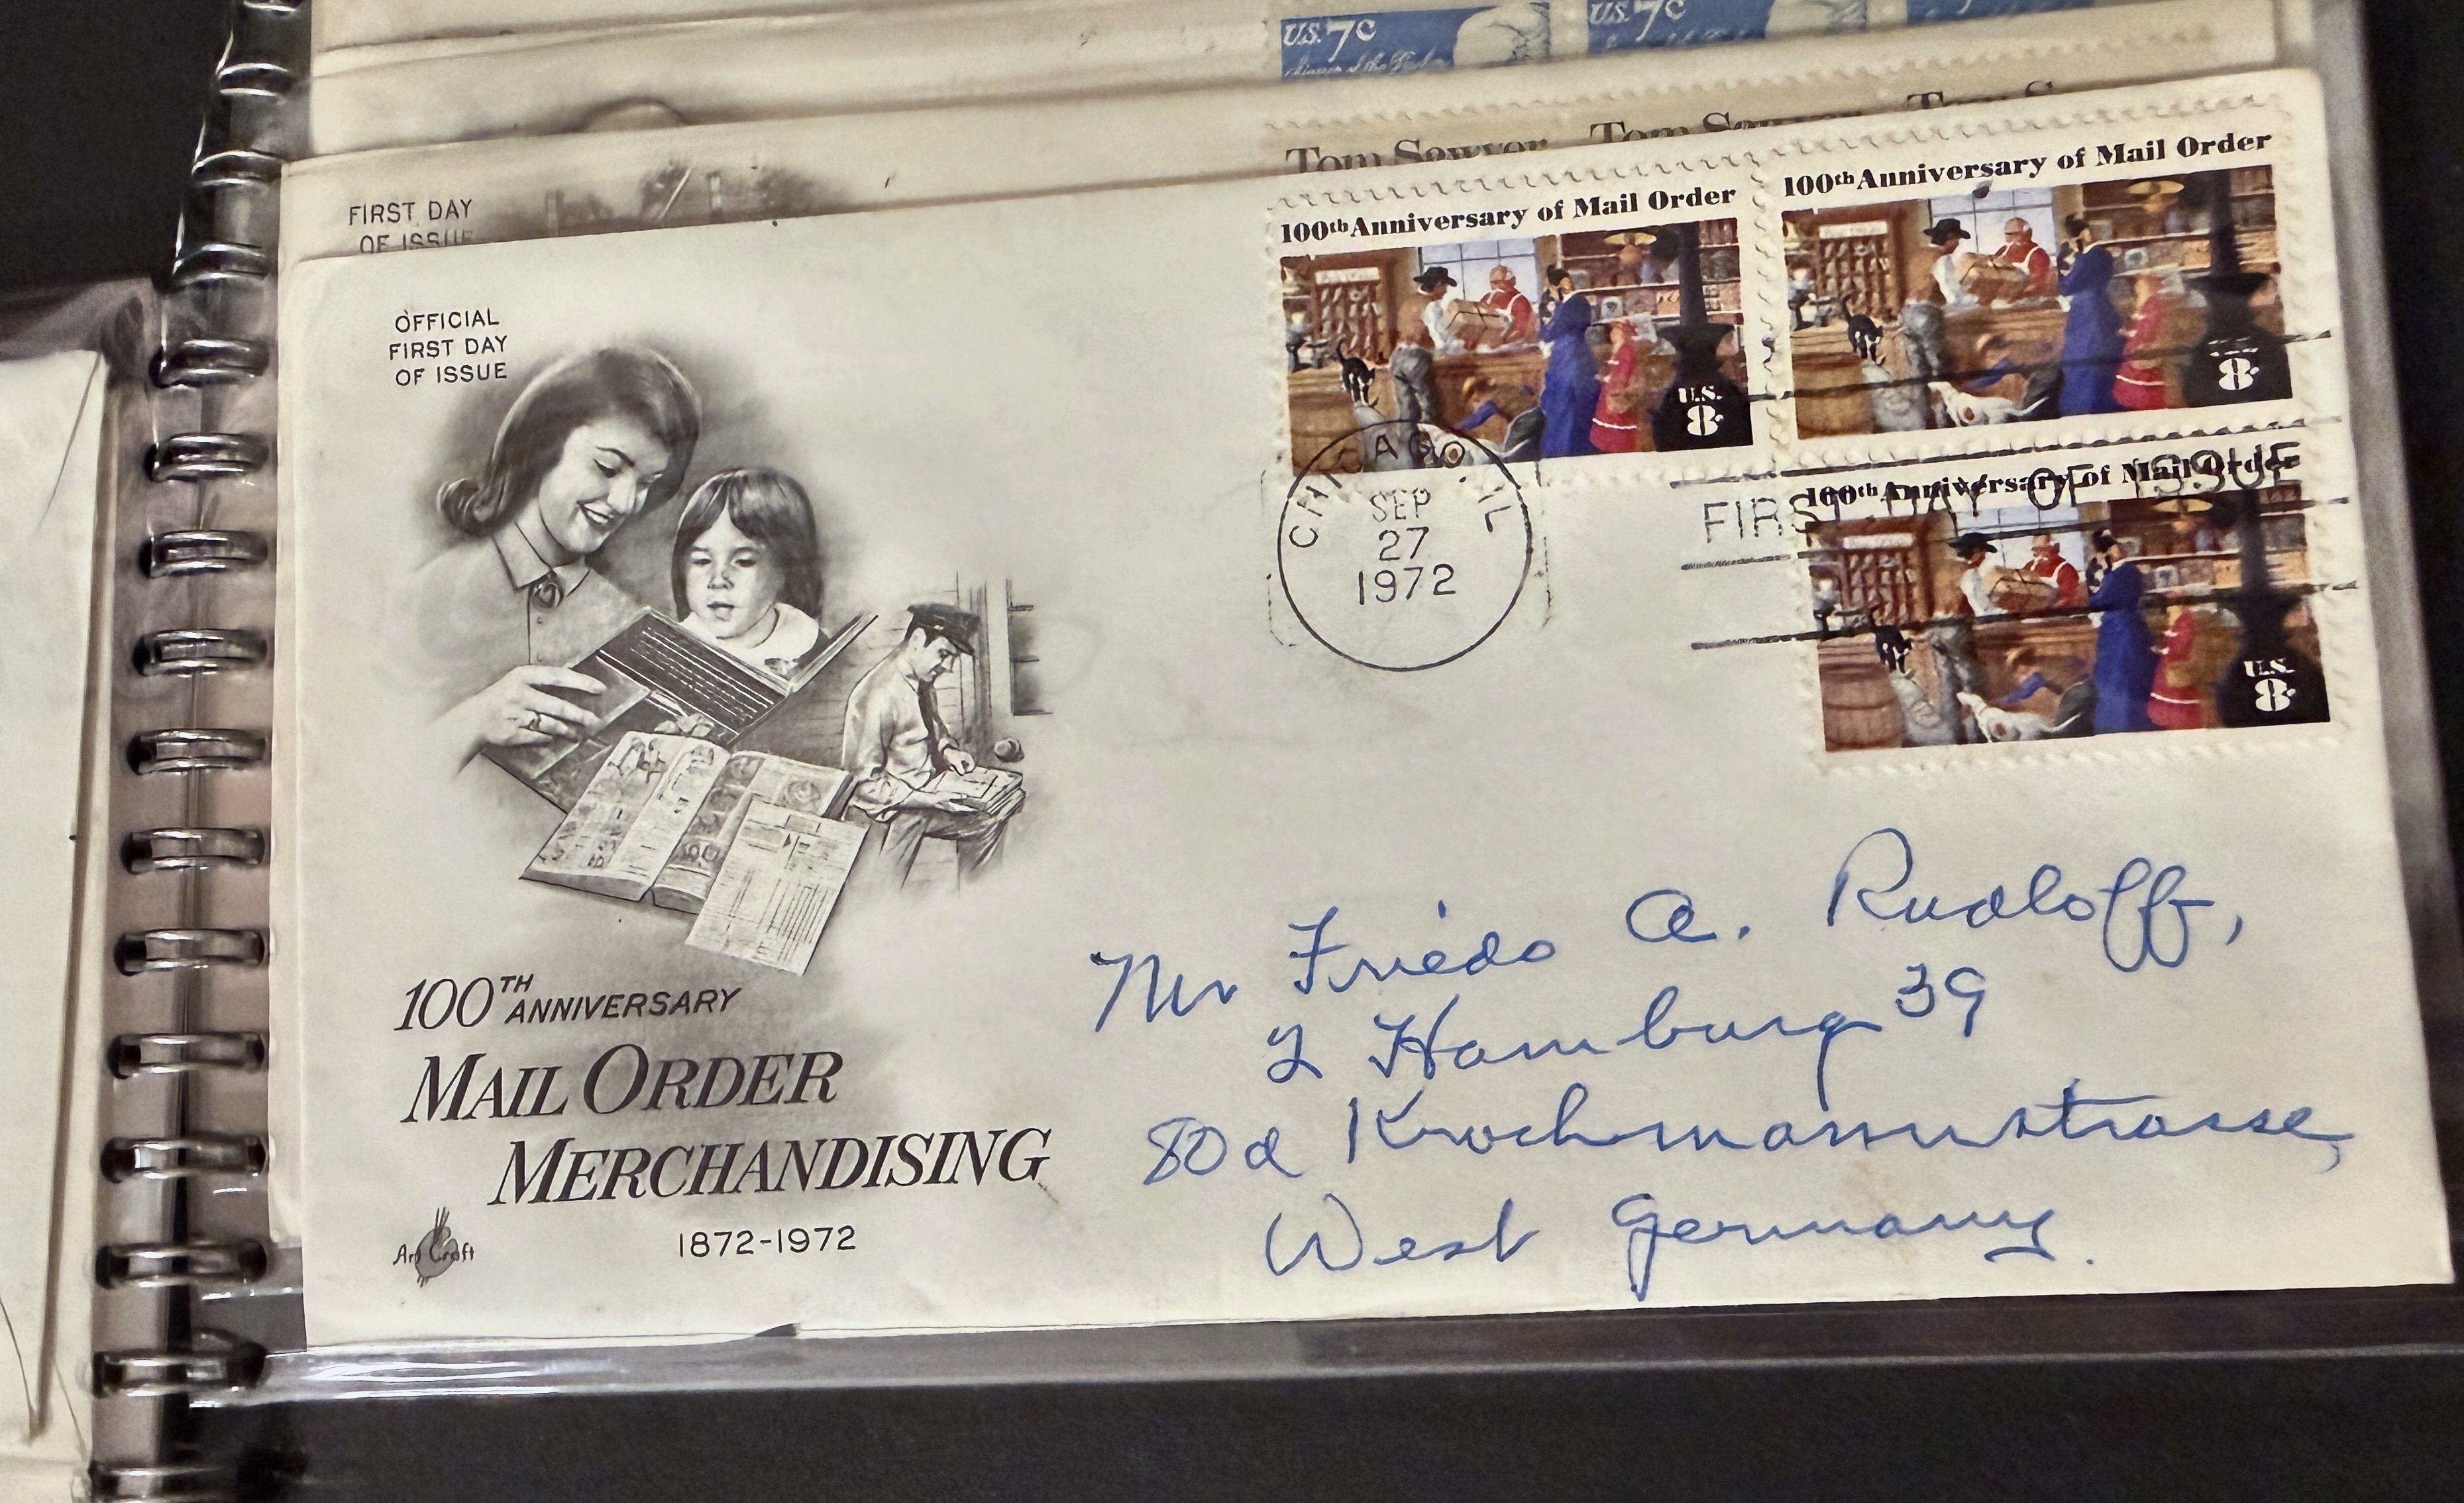 U.S. 7c
U.S. 7c
Tom Sawyer
Tom Sawyer
FIRST DAY
OF ISSUE
OFFICIAL
FIRST DAY
OF ISSUE
100th Anniversary of Mail Order
U.S.
8c
100th Anniversary of Mail Order
8c
100th Anniversary of Mail Order
U.S.
8c
CHICAGO, IL
SEP
27
1972
FIRST DAY OF ISSUE
Mr Friedo A. Rudloff,
2 Hamburg 39
80d Krochmannstrasse,
West Germany.
100TH ANNIVERSARY
MAIL ORDER
MERCHANDISING
1872-1972
Art Craft